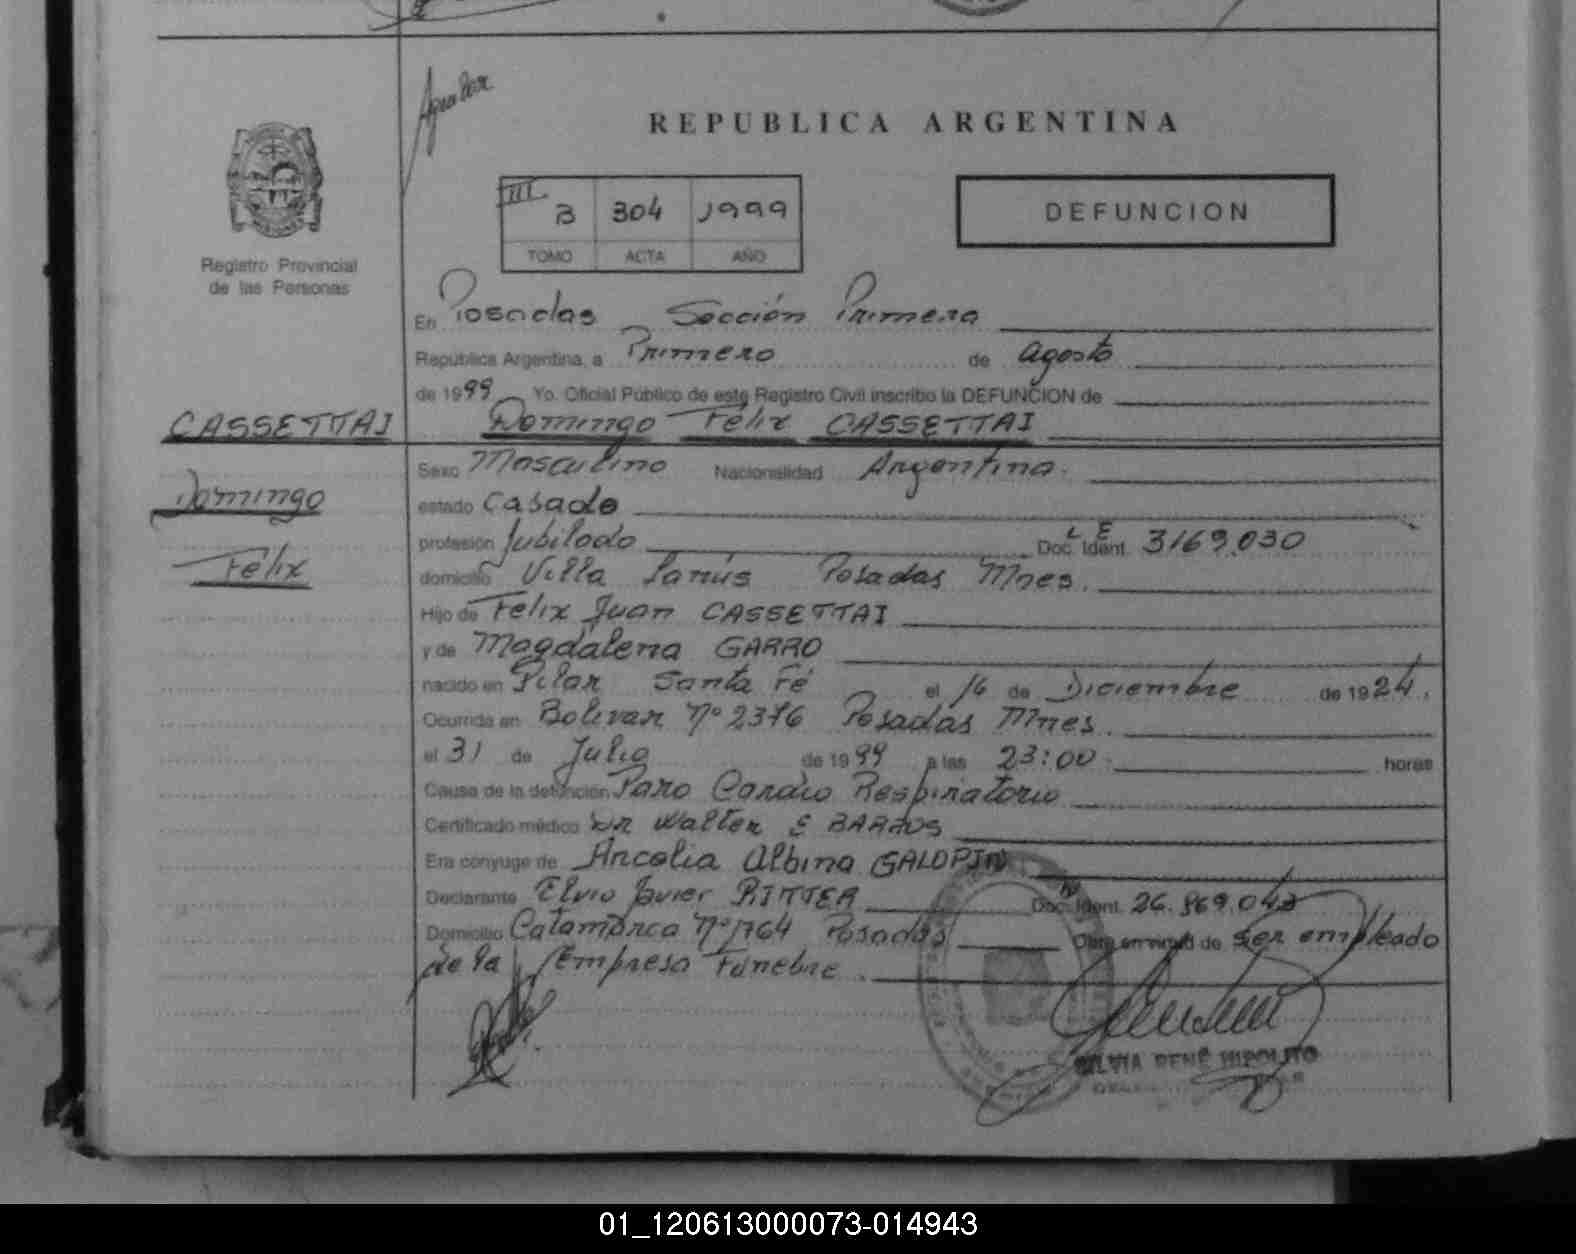 Aguilar
REPUBLICA ARGENTINA
III
B 304 1999
TOMO ACTA AÑO
DEFUNCION
Registro Provincial
de las Personas
En Posadas Sección Primera
República Argentina, a Primero de agosto
de 1999 Yo. Oficial Público de este Registro Civil inscribo la DEFUNCION de
CASSETTAI
Domingo Félix CASSETTAI
Domingo
Félix
Sexo Masculino Nacionalidad Argentina.
estado Casado
profesión Jubilado Doc. Ident. L E 3169.030
domicilio Villa Lanús Posadas Mnes.
Hijo de Félix Juan CASSETTAI
y de Magdalena GARRO
nacido en Pilar Santa Fé el 16 de Diciembre de 1924.
Ocurrida en Bolivar Nº 2376 Posadas Mnes.
el 31 de Julio de 1999 a las 23:00 horas
Causa de la defunción Paro Cardio Respiratorio
Certificado médico DR Walter E BARROS
Era cónyuge de Ancelia Albina GALOPIN
Declarante Elvio Javier RITTER Doc. Ident. 26.869.043
Domicilio Catamarca Nº 1764 Posadas Obra en virtud de ser empleado
de la Empresa Fúnebre.
SILVIA RENÉ HIPOLITO
01_120613000073-014943